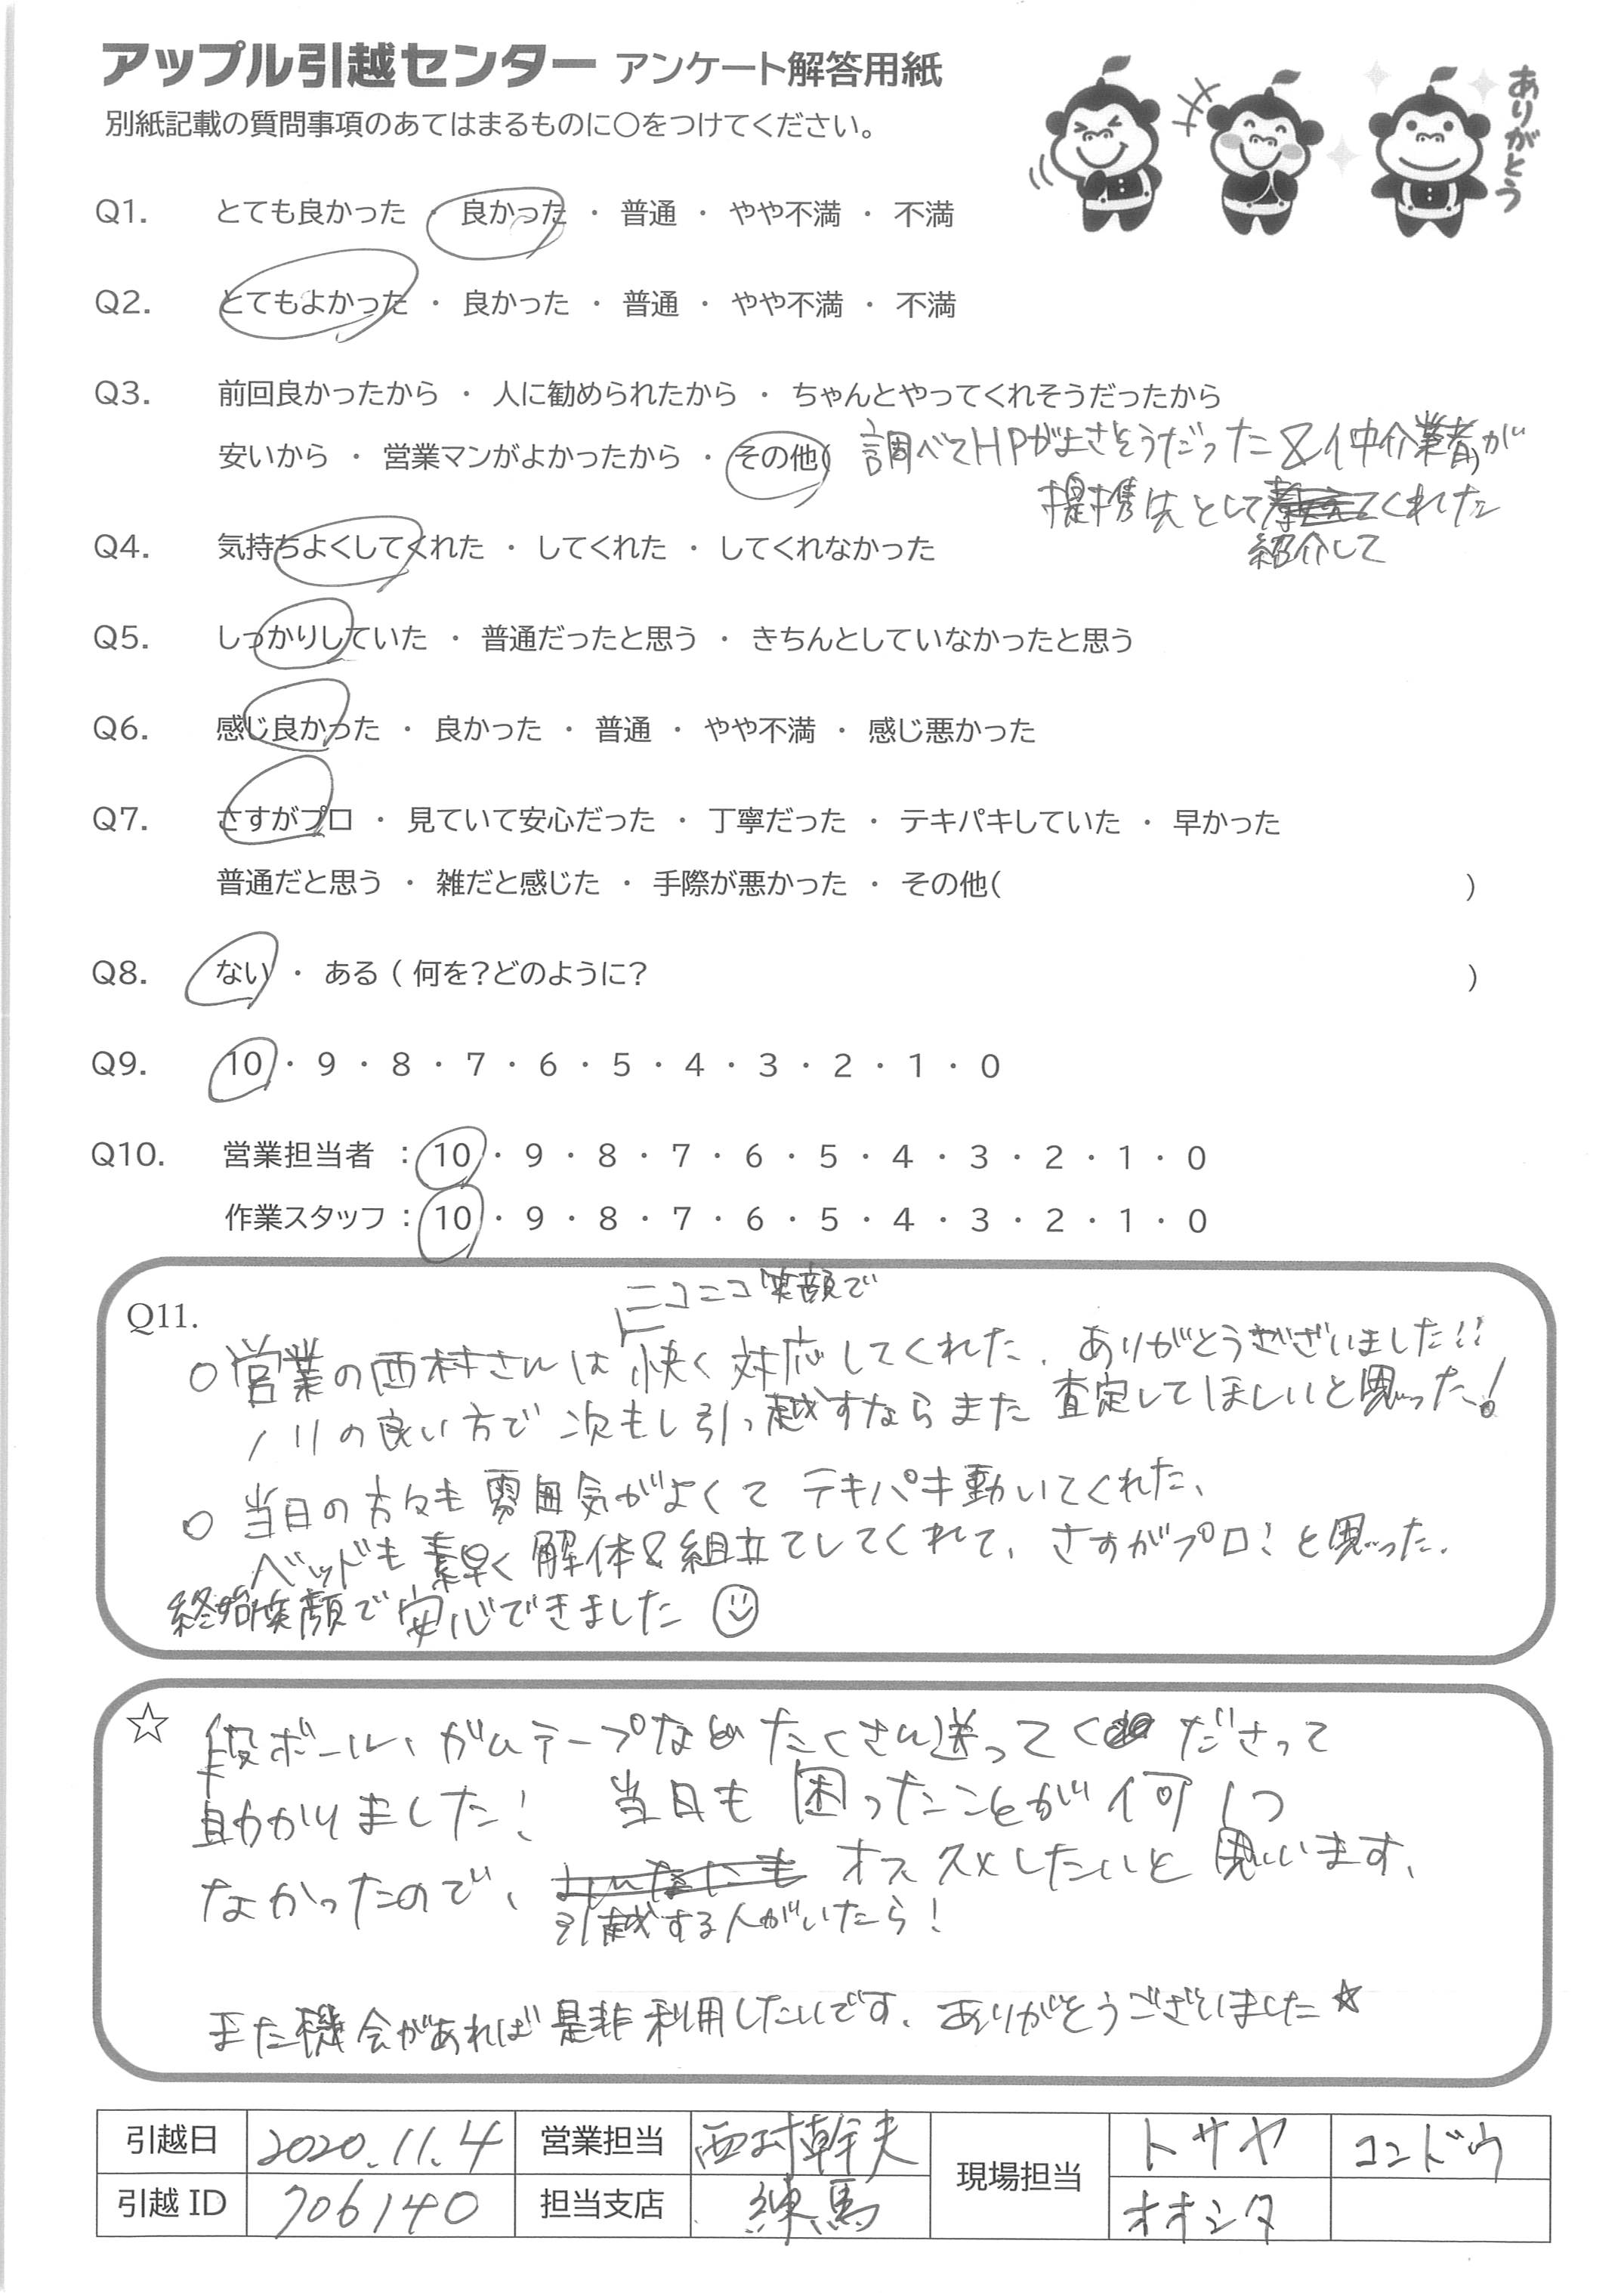 アップル引越センター アンケート解答用紙
別紙記載の質問事項のあてはまるものに○をつけてください。
ありがとう
Q1. とても良かった ・ 良かった ・ 普通 ・ やや不満 ・ 不満
Q2. とてもよかった ・ 良かった ・ 普通 ・ やや不満 ・ 不満
Q3. 前回良かったから ・ 人に勧められたから ・ ちゃんとやってくれそうだったから
安いから ・ 営業マンがよかったから ・ その他( 調べてHPがよさそうだった & 仲介業者が )
提携先として くれた
紹介して
Q4. 気持ちよくしてくれた ・ してくれた ・ してくれなかった
Q5. しっかりしていた ・ 普通だったと思う ・ きちんとしていなかったと思う
Q6. 感じ良かった ・ 良かった ・ 普通 ・ やや不満 ・ 感じ悪かった
Q7. さすがプロ ・ 見ていて安心だった ・ 丁寧だった ・ テキパキしていた ・ 早かった
普通だと思う ・ 雑だと感じた ・ 手際が悪かった ・ その他( )
Q8. ない ・ ある ( 何を?どのように? )
Q9. 10 ・ 9 ・ 8 ・ 7 ・ 6 ・ 5 ・ 4 ・ 3 ・ 2 ・ 1 ・ 0
Q10. 営業担当者 : 10 ・ 9 ・ 8 ・ 7 ・ 6 ・ 5 ・ 4 ・ 3 ・ 2 ・ 1 ・ 0
作業スタッフ : 10 ・ 9 ・ 8 ・ 7 ・ 6 ・ 5 ・ 4 ・ 3 ・ 2 ・ 1 ・ 0
Q11.
ニコニコ笑顔で
○ 営業の西村さんは 快く対応してくれた. ありがとうございました!!
ノリの良い方で 次もし引っ越すならまた 査定してほしいと思った!
○ 当日の方々も 雰囲気がよくて テキパキ動いてくれた、
ベッドも素早く解体&組立てしてくれて、さすがプロ!と思った.
終始笑顔で安心できました
☆ 段ボール、ガムテープなど たくさん送って く ださって
助かりました! 当日も 困ったことが何1つ
なかったので、 オススメしたいと思います、
引越する人がいたら!
また機会があれば是非利用したいです、ありがとうございました☆
引越日 2020.11.4 営業担当 西村幹夫 現場担当 トサヤ コンドウ
引越ID 706140 担当支店 練馬 オオシタ